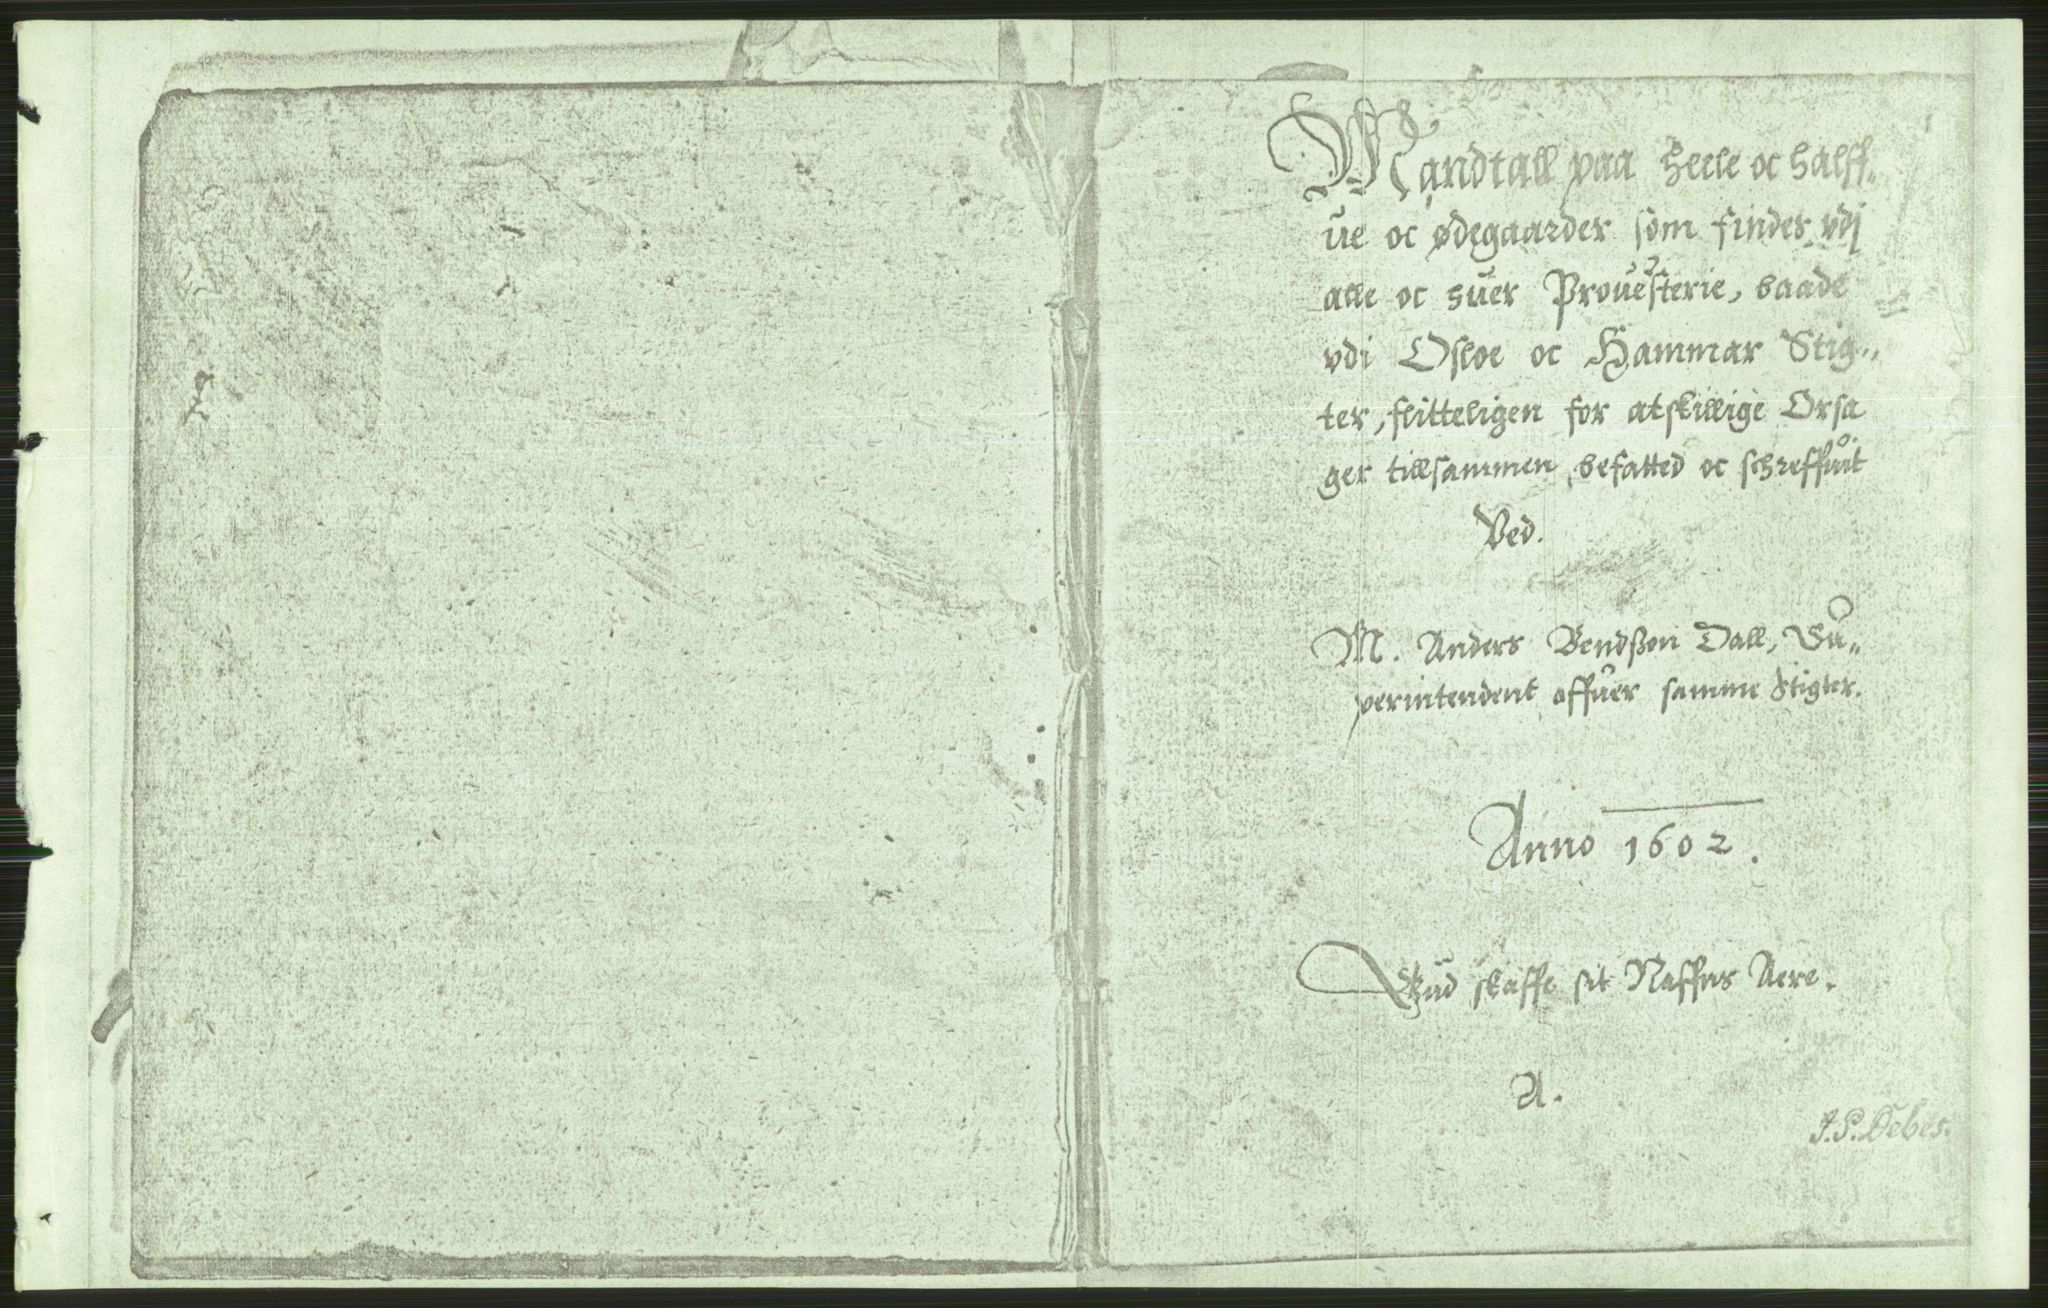 Mandtall paa heele oc halff-
ue oc ødegaarder som finder vdj
alle oc huer Prouesterie, baade
vdi Osloe oc Hammar Stig-
ter, flitteligen for atskillige Orsa
ger tillsammen befatted oc schreffuit
Ved.
M. Anders Bendßøn Dall, Su-
perintendent offuer samme Stigter.
Anno 1602.
Gud skaffe sit Naffns Aere.
A.
J. P. Debes.